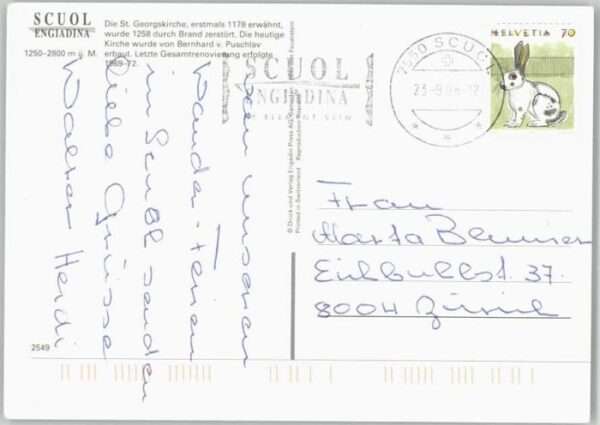 SCUOL
ENGIADINA
1250-2800 m ü. M.
Die St. Georgskirche, erstmals 1178 erwähnt,
wurde 1258 durch Brand zerstört. Die heutige
Kirche wurde von Bernhard v. Puschlav
erbaut. Letzte Gesamtrenovierung erfolgte
1969-72.
Von unseren
Wander-Ferien
in Scuol senden
Liebe Grüsse
Walter Heidi
2549
© Druck und Verlag Engadin Press AG
Printed in Switzerland
SCUOL
ENGIADINA
7550 SCUOL
HELVETIA 70
Frau
Marta Blumer
Eichbühlst. 37.
8004 Zürich